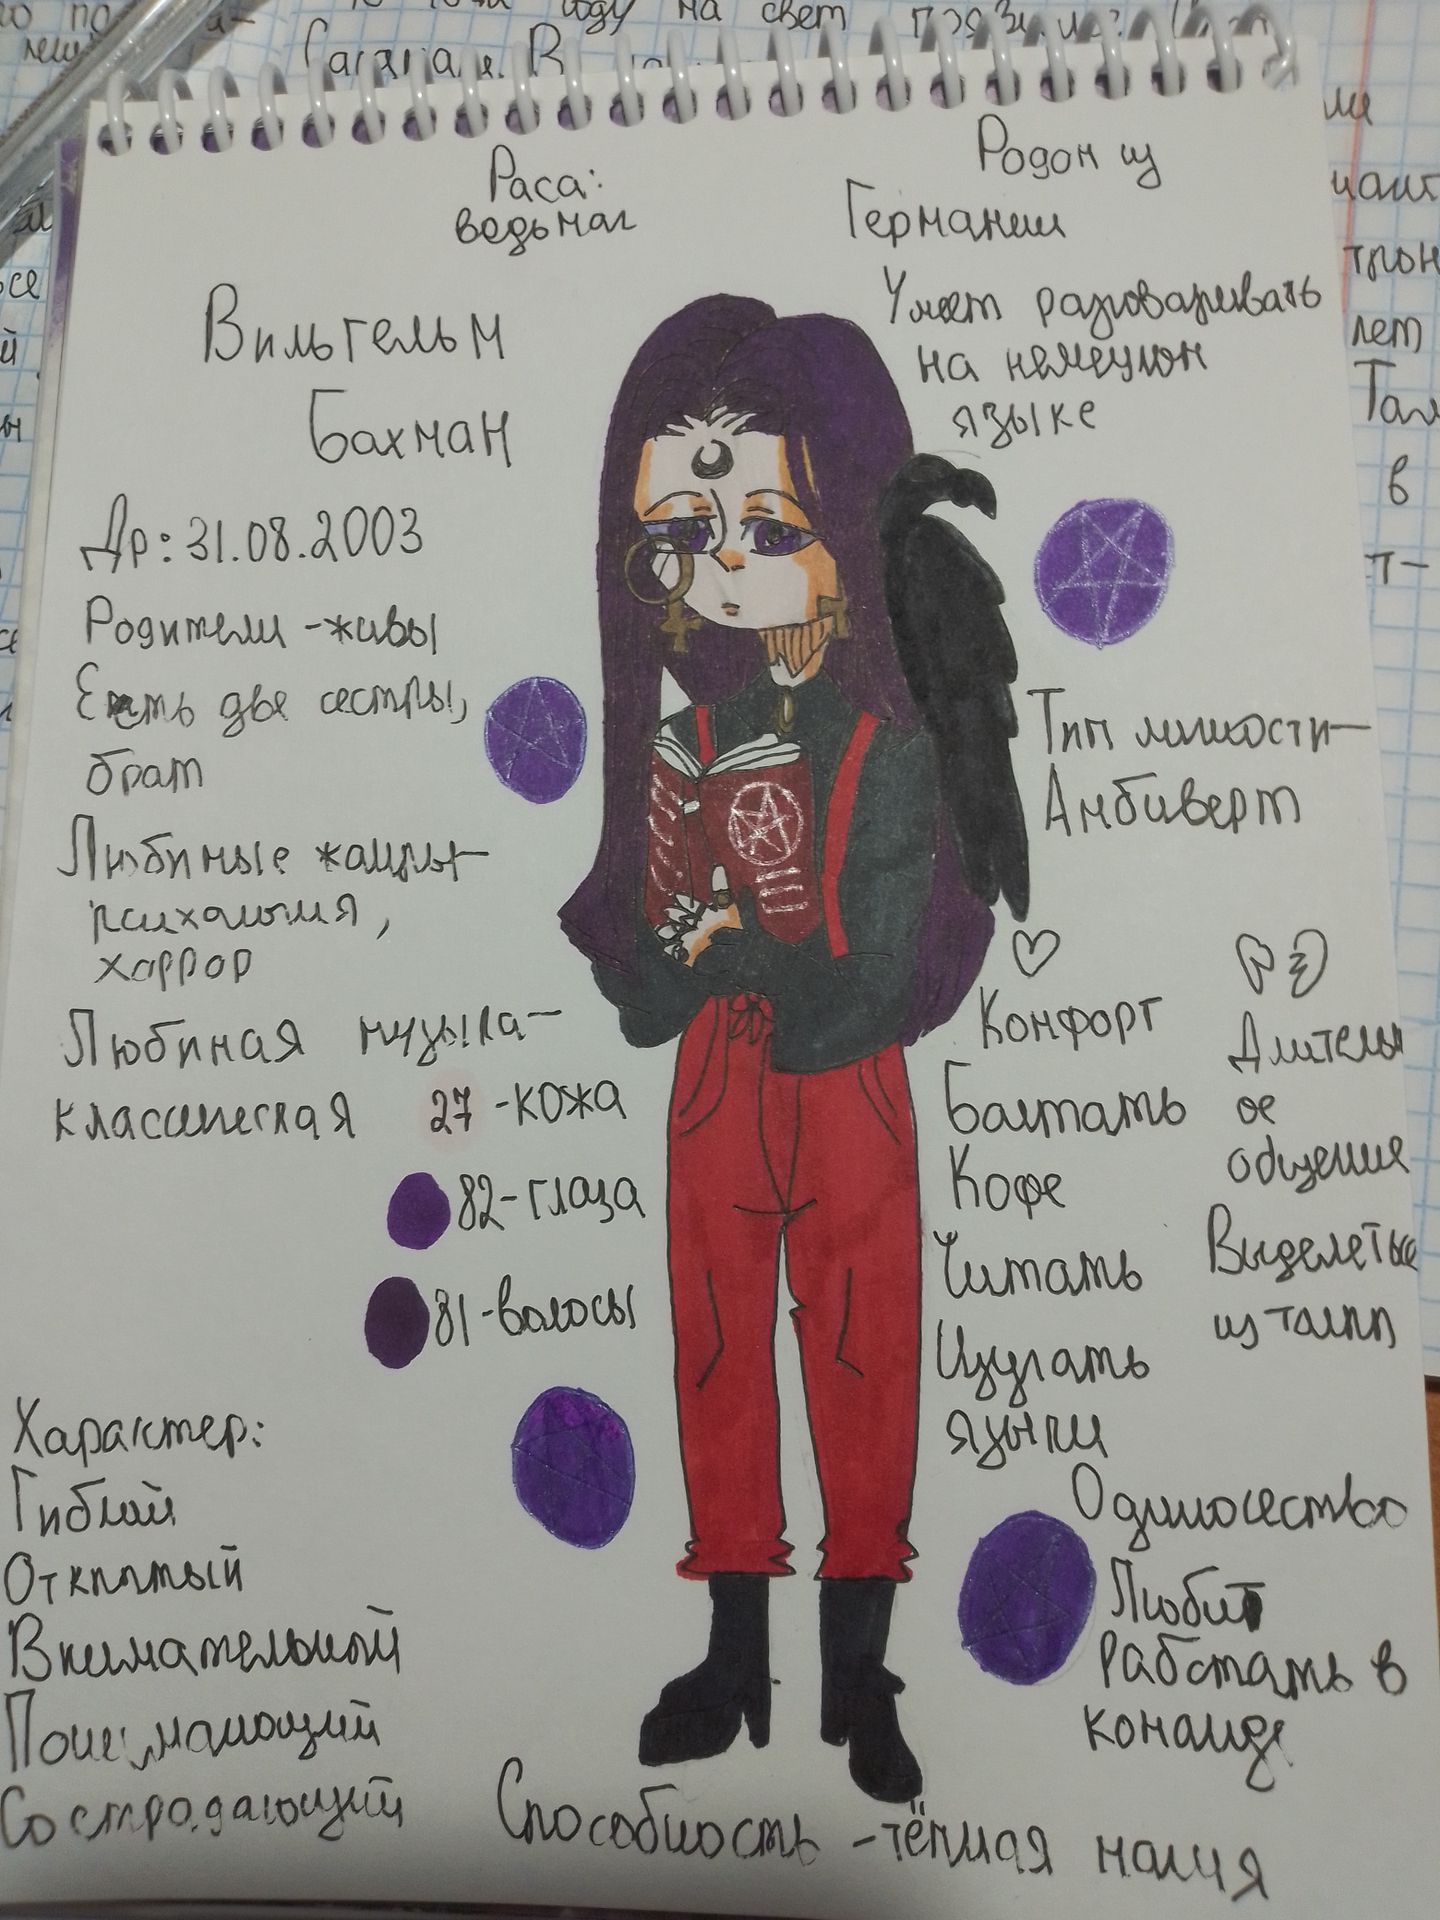 году на свет
Раса:
ведьмаг
Родом из
Германии
Умеет разговаривать
на немецком
языке
Вильгельм
Бахман
Др: 31.08.2003
Родители - живы
Есть две сестры,
брат
Любимые жанры -
психология,
хоррор
Любимая музыка -
классическая
27 - кожа
82 - глаза
81 - волосы
Тип личности -
Амбиверт
Комфорт
Болтать
Кофе
Читать
Изучать
языки
Одиночество
Любит
работать в
команде
Длительн
ое
общение
Выделеться
из толпы
Характер:
Гибкий
Открытый
Внимательный
Понимающий
Сострадающий
Способность - тёмная магия
лет
в